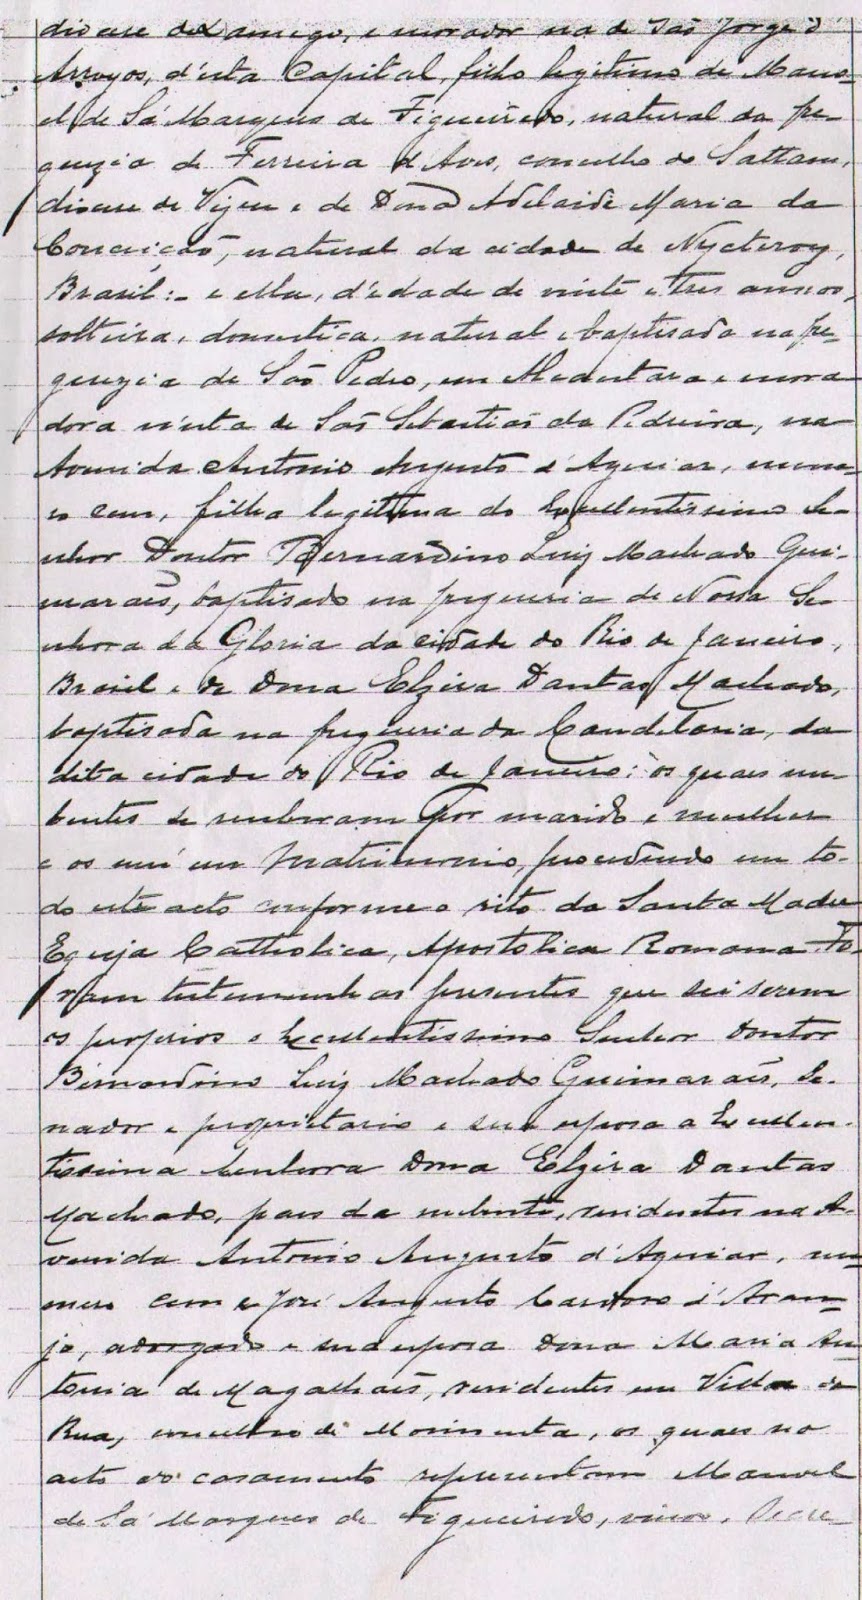 diocese de Lamego, e morador na de São Jorge d'
Arroyos, d'esta Capital, filho legitimo de Mano-
el de Sá Marques de Figueiredo, natural da fre-
guezia de Ferreira d'Aves, concelho de Sattam,
diocese de Vizeu e de Dona Adelaide Maria da
Conceição, natural da cidade de Nycteroy,
Brasil:- e ella, d'edade de vinte e tres annos,
solteira, domestica, natural e baptisada na fre-
guezia de São Pedro, em Alcantara e mora
dora n'esta de São Sebastião da Pedreira, na
Avenida Antonio Augusto d'Aguiar, nume-
ro cem, filha legitima do Excellentissimo Se-
nhor Doutor Bernardino Luiz Machado Gui-
marães, baptisado na freguezia de Nossa Se-
nhora da Gloria da cidade do Rio de Janeiro,
Brasil e de Dona Elzira Dantas Machado,
baptisada na freguezia da Candelaria, da
dita cidade do Rio de Janeiro: os quaes nu-
bentes se receberam por marido e mulher
e os uni em Matrimonio, procedendo em to-
do este acto conforme o rito da Santa Madre
Egreja Catholica, Apostolica Romana. Fo-
ram testemunhas presentes que sei serem
os proprios o Excellentissimo Senhor Doutor
Bernardino Luiz Machado Guimarães, Se-
nador e proprietario e sua esposa a Excellen-
tissima Senhora Dona Elzira Dantas
Machado, paes da nubente, residentes na A-
venida Antonio Augusto d'Aguiar, nu-
mero cem e José Augusto Cardoso d'Arau-
jo, advogado e sua esposa Dona Maria An
tonia de Magalhães, residentes em Villa da
Rua, concelho de Moimenta, os quaes no
acto do casamento representam Manoel
de Sá Marques de Figueiredo, viuvo,